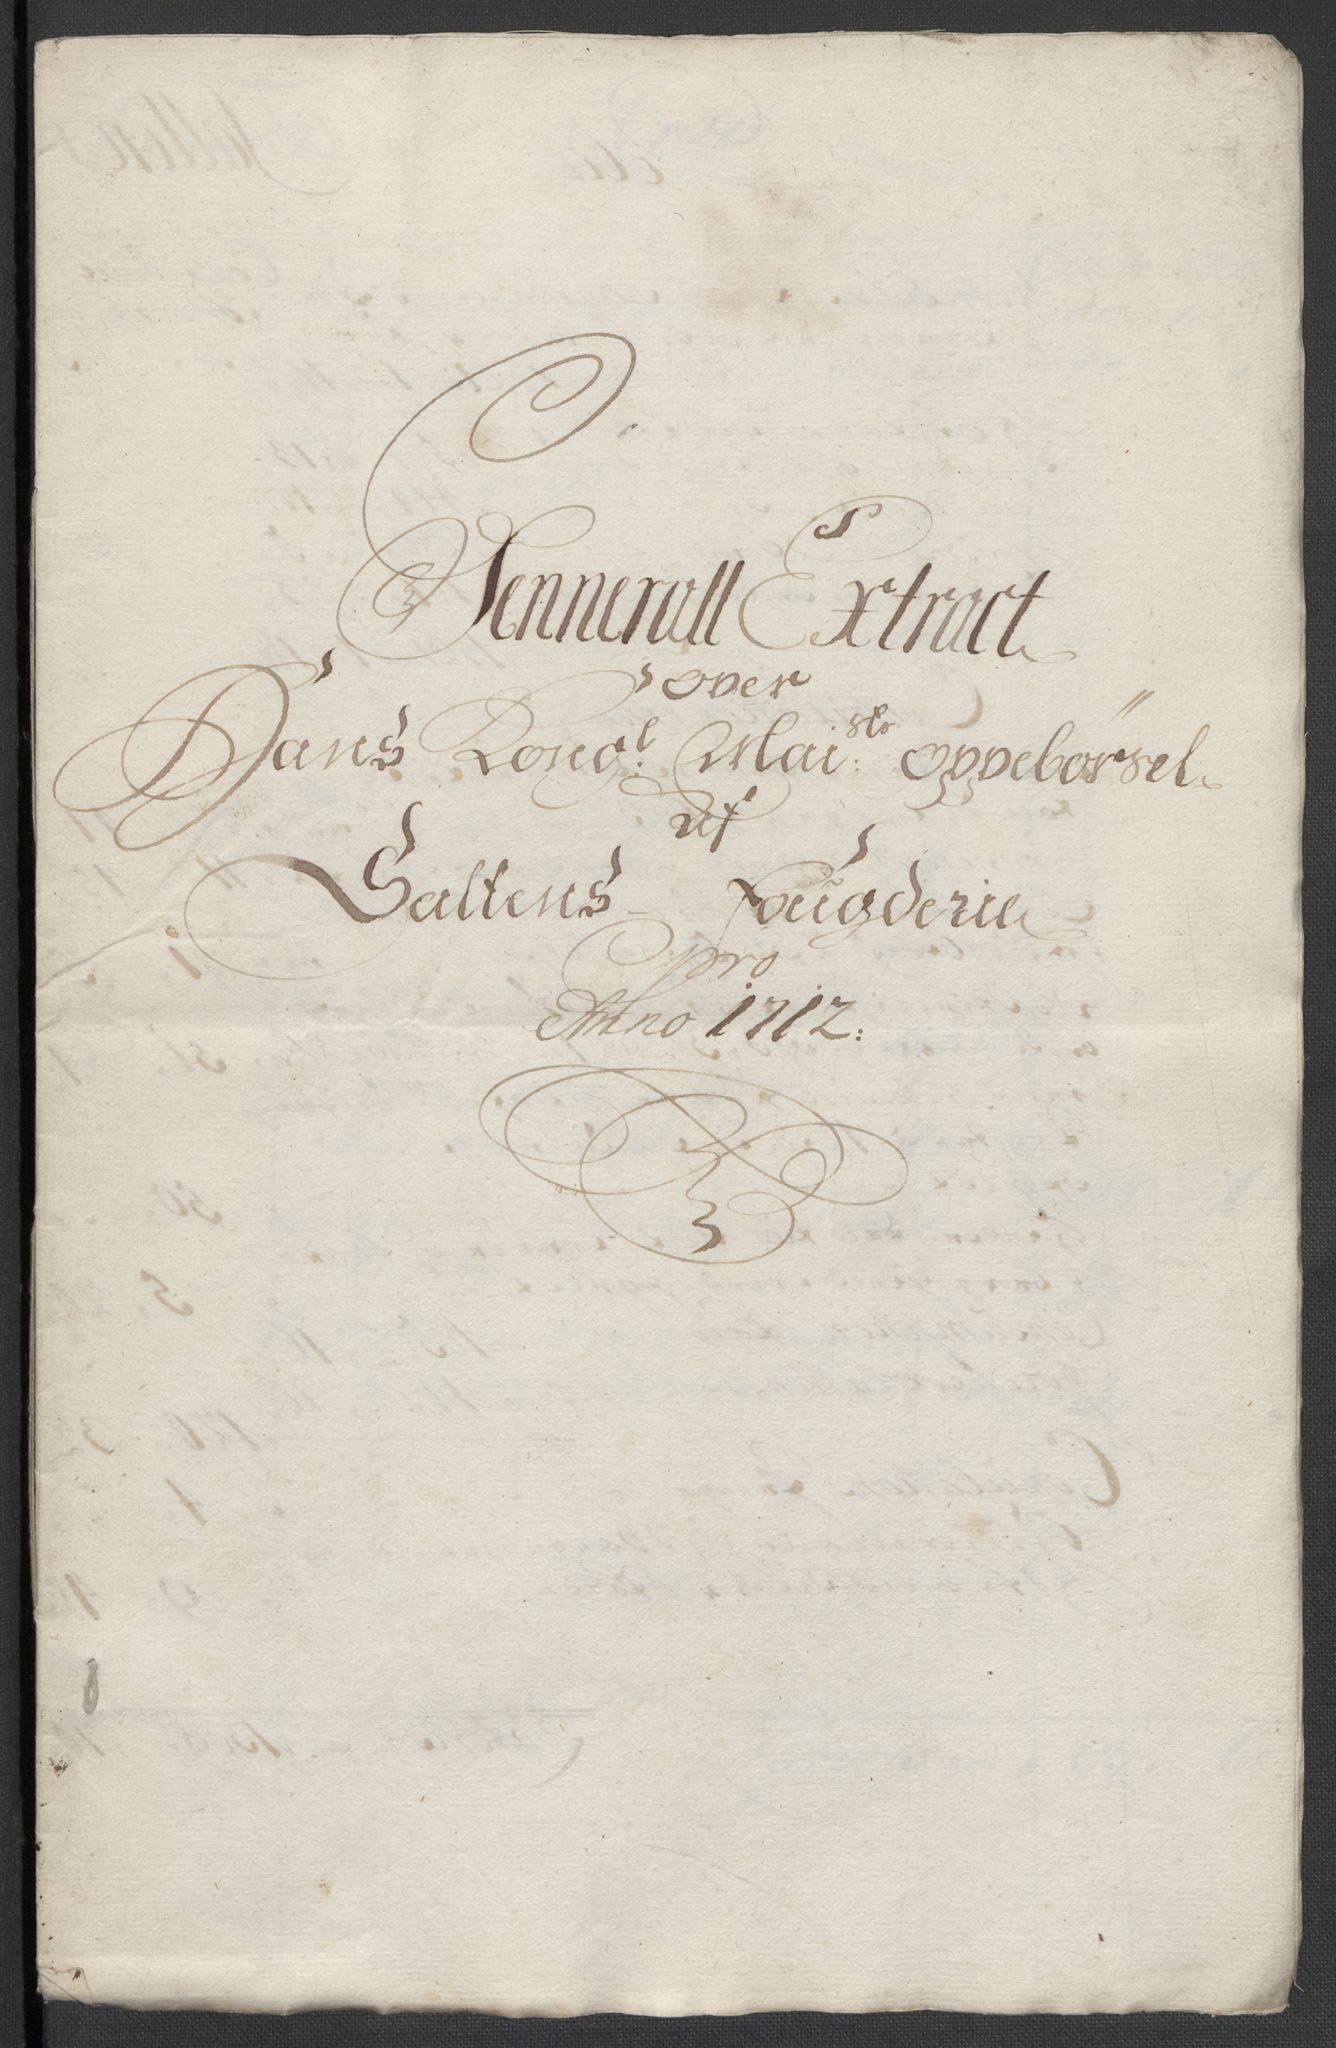 Gennerall Extract
over
Hans Kongl: Maists: oppebörsel
af
Saltens Fougderie
pro
Anno 1712: